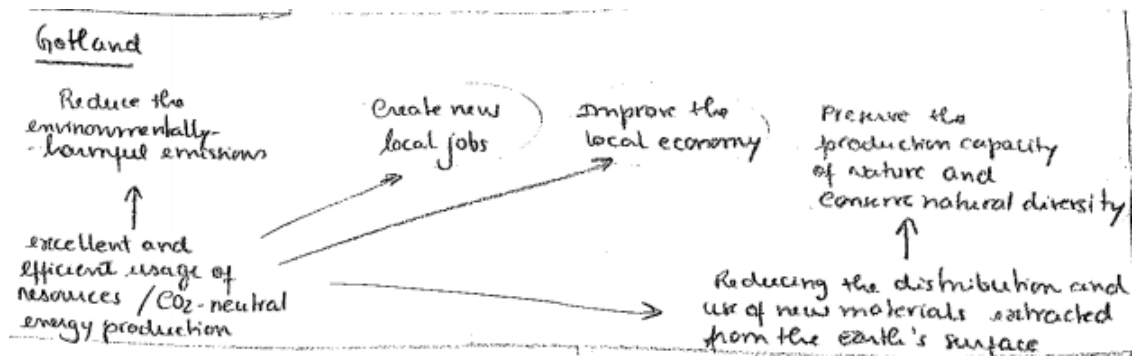 Gotland
Reduce the
environmentally-
-harmful emissions
Create new
local jobs
Improve the
local economy
Preserve the
production capacity
of nature and
conserve natural diversity
excellent and
efficient usage of
resources / CO2-neutral
energy production
Reducing the distribution and
use of new materials extracted
from the earth's surface